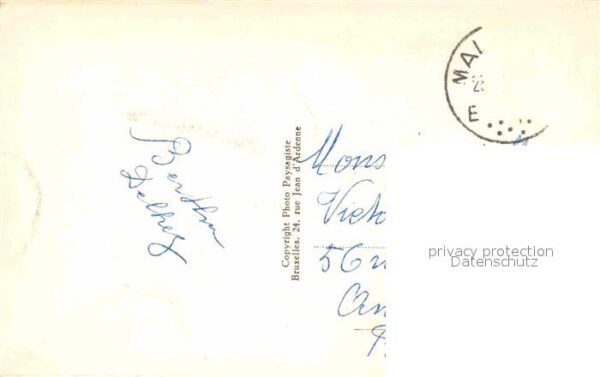 Bertha
Delhez
Copyright Photo Paysagiste
Bruxelles, 24, rue Jean d'Ardenne
MA
E
Mons
Vict
56
privacy protection
Datenschutz